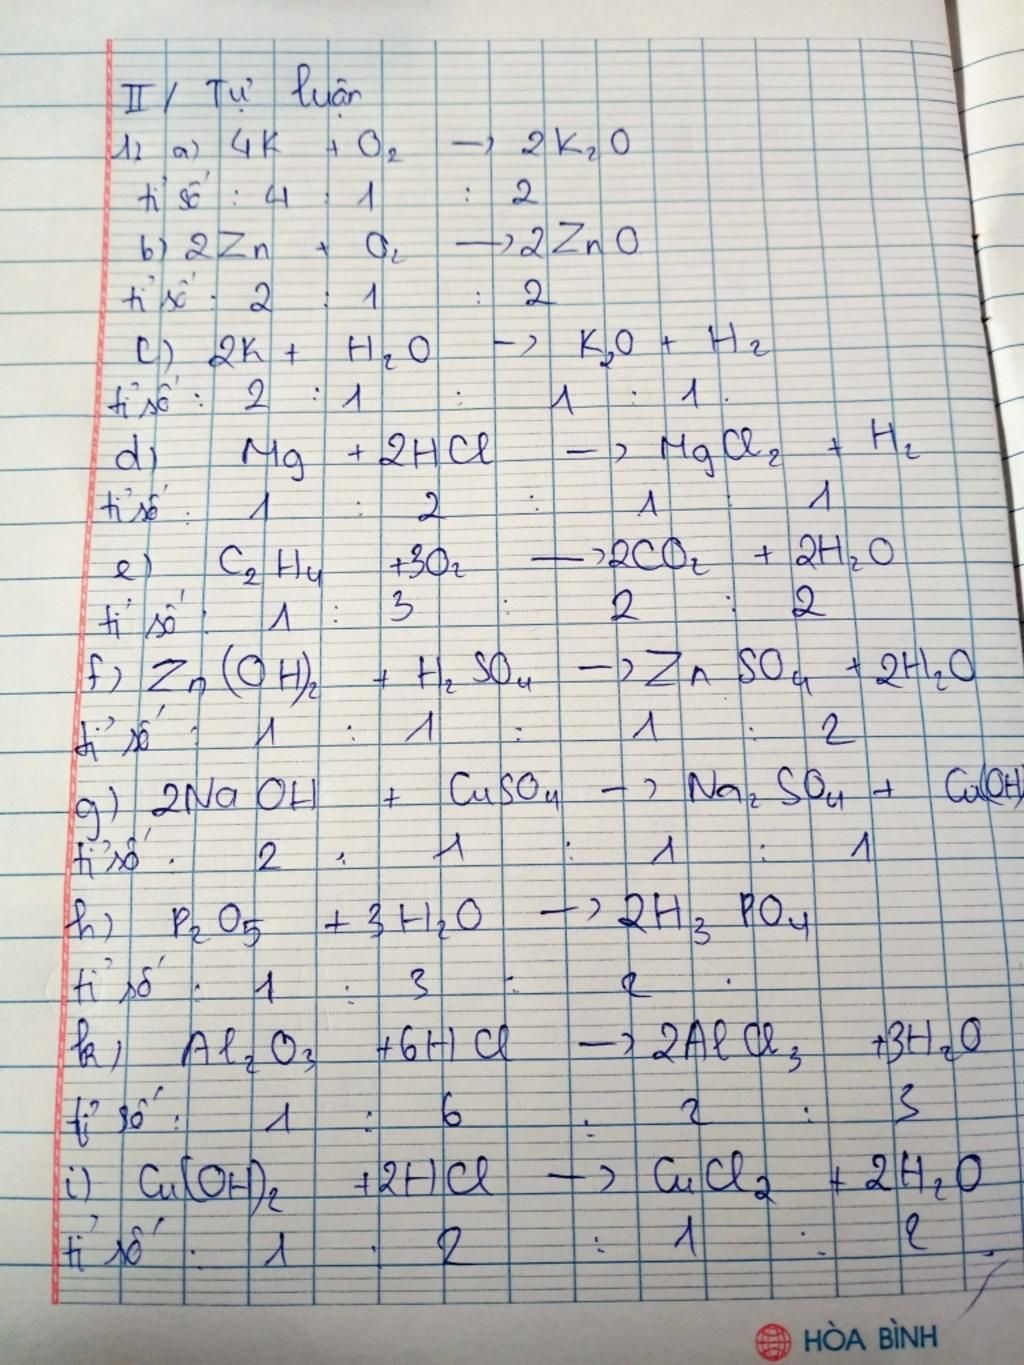 II/ Tự luận
1, a) 4K + O₂ → 2K₂O
tỉ số : 4 : 1 : 2
b) 2Zn + O₂ → 2ZnO
tỉ số : 2 : 1 : 2
c) 2K + H₂O → K₂O + H₂
tỉ số : 2 : 1 : 1 : 1.
d) Mg + 2HCl → MgCl₂ + H₂
tỉ số : 1 : 2 : 1 : 1
e) C₂H₄ +3O₂ → 2CO₂ + 2H₂O
tỉ số : 1 : 3 : 2 : 2
f) Zn(OH)₂ + H₂SO₄ → ZnSO₄ + 2H₂O
tỉ số : 1 : 1 : 1 : 2
g) 2NaOH + CuSO₄ → Na₂SO₄ + Cu(OH)
tỉ số : 2 : 1 : 1 : 1
h) P₂O₅ + 3H₂O → 2H₃PO₄
tỉ số : 1 : 3 : 2 .
k) Al₂O₃ +6HCl → 2AlCl₃ +3H₂O
tỉ số : 1 : 6 : 2 : 3
i) Cu(OH)₂ +2HCl → CuCl₂ + 2H₂O
tỉ số : 1 : 2 : 1 : 2
HÒA BÌNH